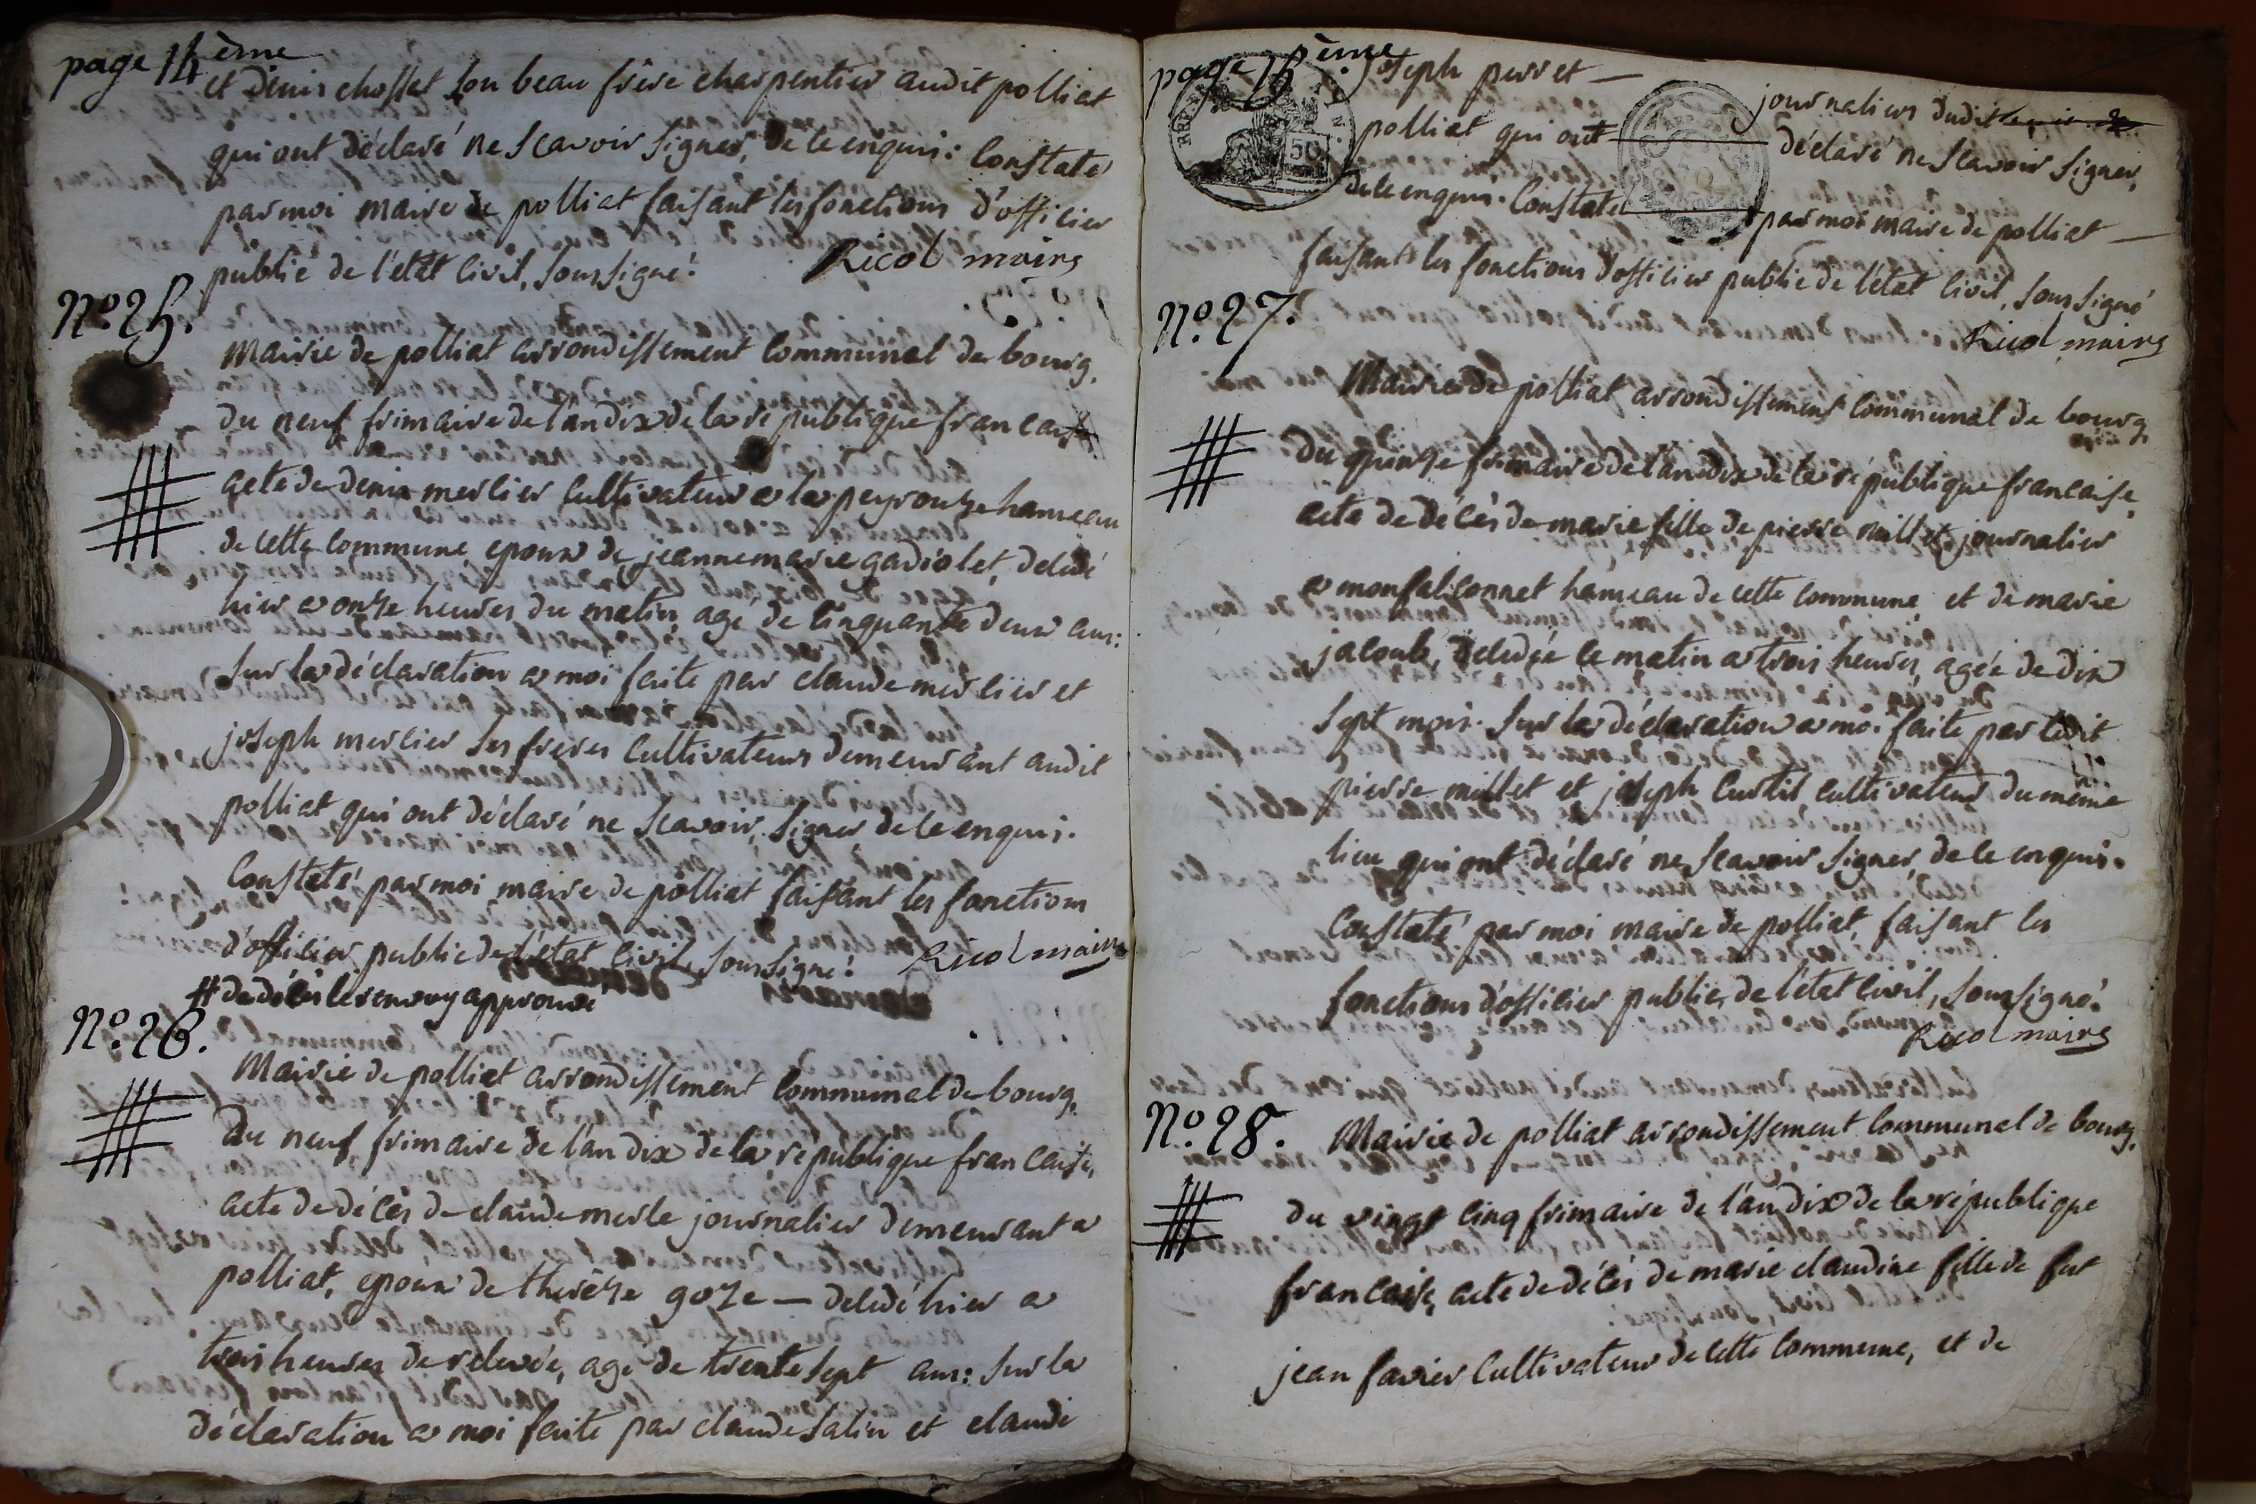 page 14ème
et Denis chosset son beau frère charpentier audit polliat
qui ont déclaré ne scavoir signer, de ce enquis: Constaté
par moi maire de polliat faisant les fonctions d'officier
public de l'état civil, soussigné: Ricol maire
No. 25.
Mairie de polliat arrondissement communal de bourg.
du neuf frimaire de l'an dix de la république francaise
acte de denis merlier cultivateur a la peyrouze hameau
de cette commune, epoux de jeannemarie gadiolet, deledé
hier a onze heures du matin, agé de cinquante deux ans:
Sur la déclaration a moi faite par claude merlier et
joseph merlier ses freres cultivateurs demeurant audit
polliat qui ont déclaré ne scavoir signer de ce enquis.
Constaté par moi maire de polliat faisant les fonctions
d'officier public de l'état civil, soussigné: Ricol maire
# de décès le renvoy approuvé
No. 26.
Mairie de polliat arrondissement communal de bourg.
du neuf frimaire de l'an dix de la république francaise,
acte de décès de claude merle journalier demeurant a
polliat, epoux de therèze goze — deledé hier a
trois heures de relevée, agé de trente sept ans: sur la
déclaration a moi faite par claude salin et claude
page 15ème
joseph perret — journaliers dudit
polliat qui ont déclaré ne scavoir signer,
de ce enquis. Constaté par moi maire de polliat —
faisant les fonctions d'officier public de l'état civil, soussigné
Ricol maire
No. 27.
Mairie de polliat arrondissement communal de bourg.
Du quinze frimaire de l'an dix de la république francaise,
acte de décès de marie fille de pierre millet journalier
a monfalconnet hameau de cette commune et de marie
jacoub, deledée ce matin a trois heures, agée de dix
sept mois. Sur la déclaration a moi faite par ledit
pierre millet et joseph Curtil cultivateur du même
lieu qui ont déclaré ne scavoir signer, de ce enquis.
Constaté par moi maire de polliat, faisant les
fonctions d'officier public, de l'état civil, soussigné:
Ricol maire
No. 28.
Mairie de polliat arrondissement communal de bourg.
du vingt cinq frimaire de l'an dix de la république
francaise, acte de décès de marie claudine fille de fut
jean favier cultivateur de cette commune, et de